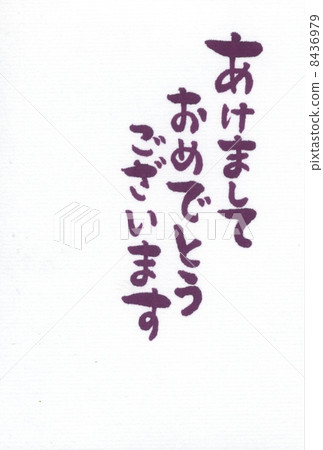 あけまして
おめでとう
ございます
PIXTA
8436979